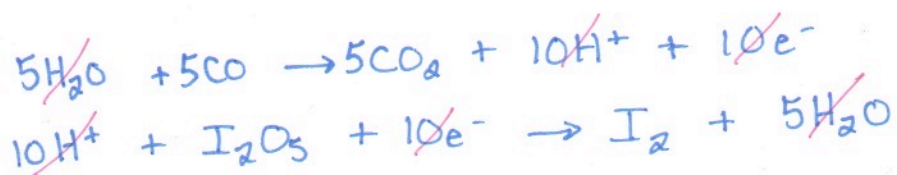 5H₂O + 5CO → 5CO₂ + 10H⁺ + 10e⁻
10H⁺ + I₂O₅ + 10e⁻ → I₂ + 5H₂O